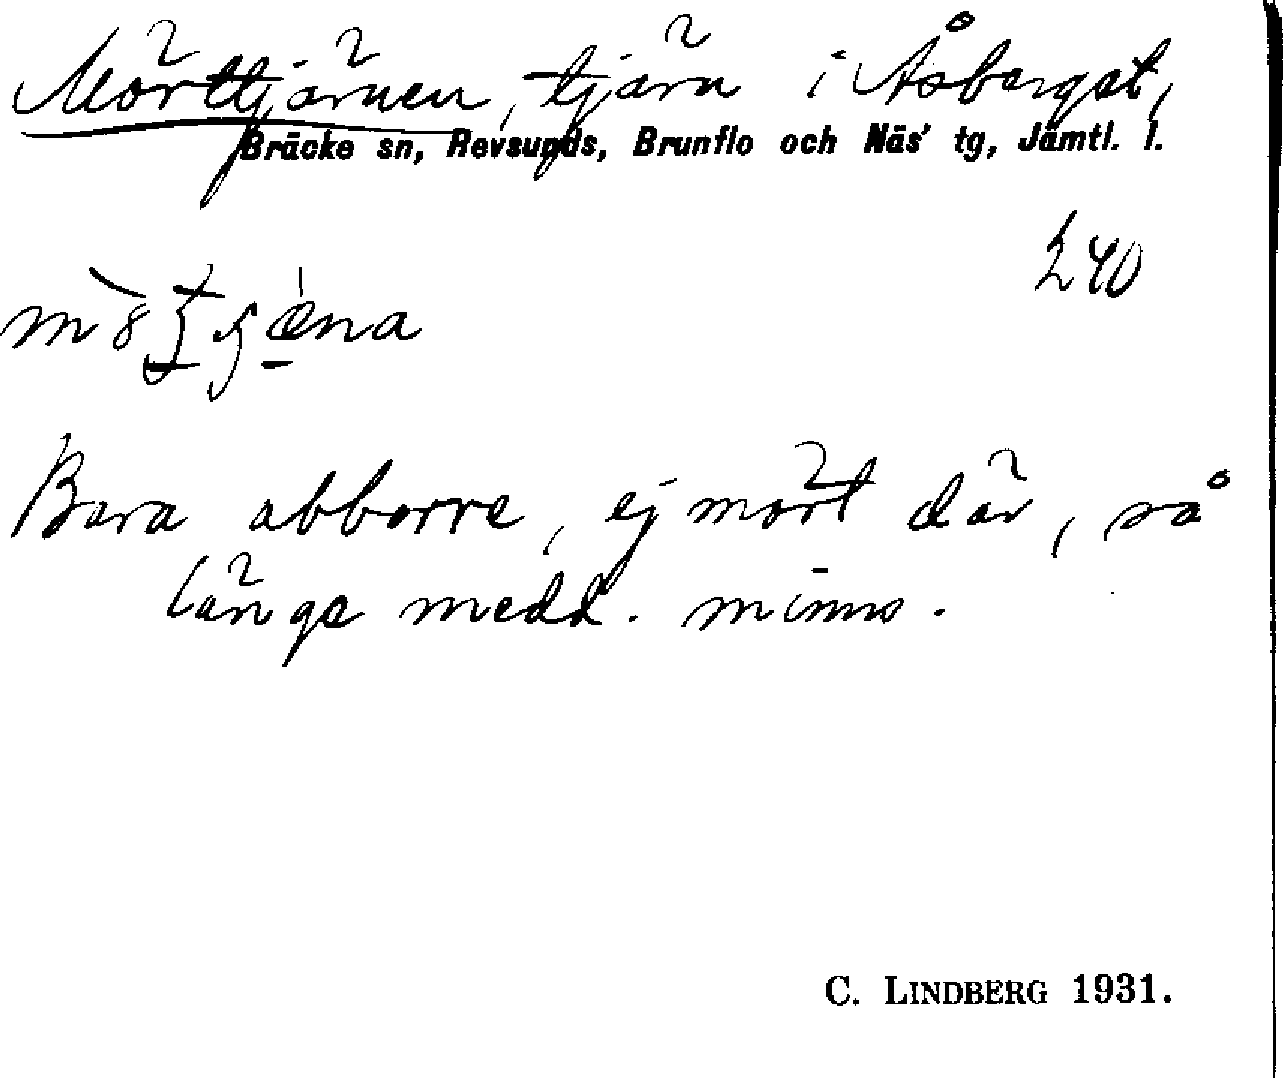 Mörttjärnen, tjärn i Åsberget,
Bräcke sn, Revsunds, Brunflo och Näs' tg, Jämtl. l.
240
Bara abborre, ej mört där, så
länge medd. minns.
C. LINDBERG 1931.